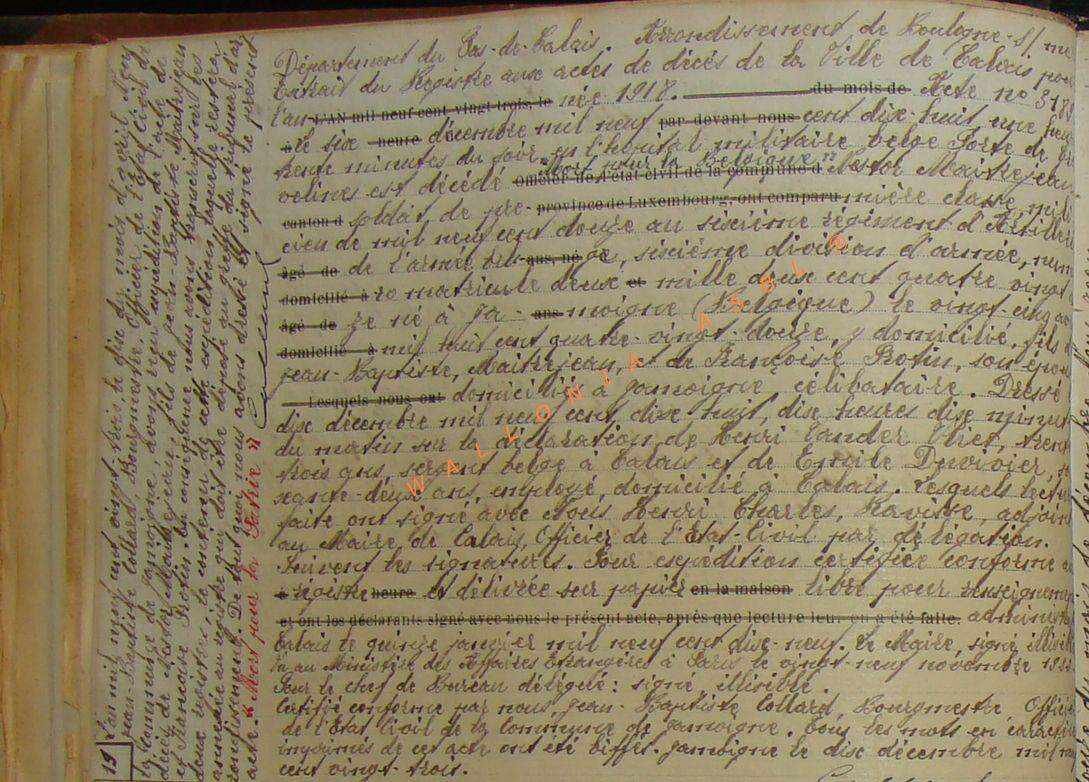 Département du Pas-de-Calais. Arrondissement de Boulogne-s/mer
Extrait du Registre aux actes de décès de la Ville de Calais pour
l'an L'AN mil neuf cent vingt-trois, le née 1918. du mois de Acte no 318
à Le six heure décembre mil neuf par devant nous cent dix-huit, une heure
trente minutes du soir, en l'hôpital militaire belge Porte de
velines est décédé "Mort pour la Belgique" officier de l'état civil de la commune d Nestor Maitrejean
canton d soldat, de pre- province de Luxembourg, ont comparu mière classe mili
cien de mil neuf cent douze au sixième régiment d'Artillerie
âgé de de l'armée bel- ans, né ge, sixième division d'armée, numé
domicilié à ro matricule deux et mille deux cent quatre vingt
âgé de ze né à Ja- ans moigne (Belgique) le vingt-cinq
domicilié à mil huit cent quatre-vingt-douze, y domicilié, fils
Jean-Baptiste, Maitrejean, et de Françoise Protin, son épou
Lesquels nous ont domicilié à Jamoigne, célibataire. Dressé
dix décembre mil neuf cent dix huit, dix heures dix minut
du matin sur la déclaration de Henri Vander trent
trois ans, sergent belge à Calais et de Emile Duvivier,
xante-deux ans, employé, domicilié à Calais. Lesquels lectu
faite ont signé avec Nous Henri Charles, Ravisse, adjoint
au Maire de Calais, Officier de l'Etat-Civil par délégation.
Suivent les signatures. Pour expédition certifiée conforme
à registre heure et délivrée sur papier en la maison libre pour renseignements
et ont les déclarants signé avec nous le présent acte, après que lecture leur en a été faite. administ
Calais le quinze janvier mil neuf cent dix-neuf. Le Maire, signé illisible
Vu au Ministère des Affaires Etrangères à Paris le vingt-neuf novembre 1922
Pour le chef de Bureau délégué: signé, illisible.
Certifié conforme par nous, Jean-Baptiste Collard, Bourgmestre Officier
de l'Etat Civil de la Commune de Jamoigne. Tous les mots en caractères
imprimés de cet acte ont été biffés. Jamoigne le dix décembre mil neuf
cent vingt-trois.
19
L'an mil neuf cent vingt trois, le dix du mois d'avril Nous
Jean-Baptiste Collard, Bourgmestre Officier de l'Etat Civil de
la Commune de Jamoigne, avons reçu expédition de l'acte de
décès de Nestor Maitrejean, fils de Jean-Baptiste Maitrejean
et Françoise Protin. En conséquence nous avons transcrit sur les
deux registres, le contenu de cette expédition, laquelle restera
annexée au registre qui doit être déposé au greffe du tribunal d'ar
rondissement. De tout quoi nous avons dressé et signé le présent
acte. "Mort pour la Patrie"
WALLONIA ASBL ©